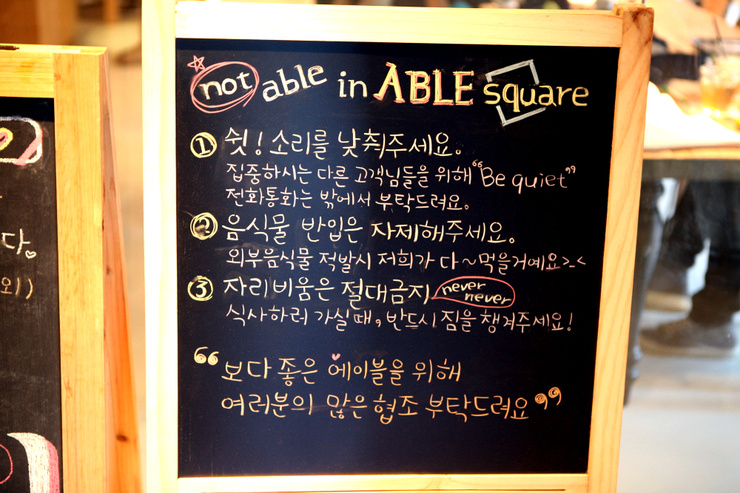 not able in ABLE square
① 쉿! 소리를 낮춰주세요.
집중하시는 다른 고객님들을 위해 "Be quiet"
전화통화는 밖에서 부탁드려요.
② 음식물 반입은 자제해주세요.
외부음식물 적발시 저희가 다~먹을거예요>_<
③ 자리비움은 절대금지 never never
식사하러 가실때, 반드시 짐을 챙겨주세요!
"보다 좋은 에이블을 위해
여러분의 많은 협조 부탁드려요"
다.
외)